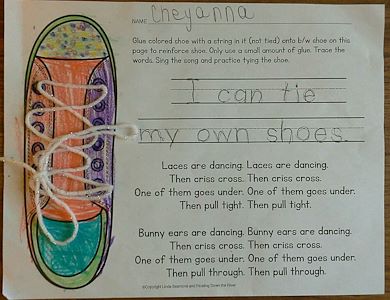 NAME Cheyanna
Glue colored shoe with a string in it (not tied) onto b/w shoe on this
page to reinforce shoe. Only use a small amount of glue. Trace the
words. Sing the song and practice tying the shoe.
I can tie
my own shoes.
Laces are dancing. Laces are dancing.
Then criss cross. Then criss cross.
One of them goes under. One of them goes under.
Then pull tight. Then pull tight.
Bunny ears are dancing. Bunny ears are dancing.
Then criss cross. Then criss cross.
One of them goes under. One of them goes under.
Then pull through. Then pull through.
©Copyright Linda Seamond and Floating Down the River